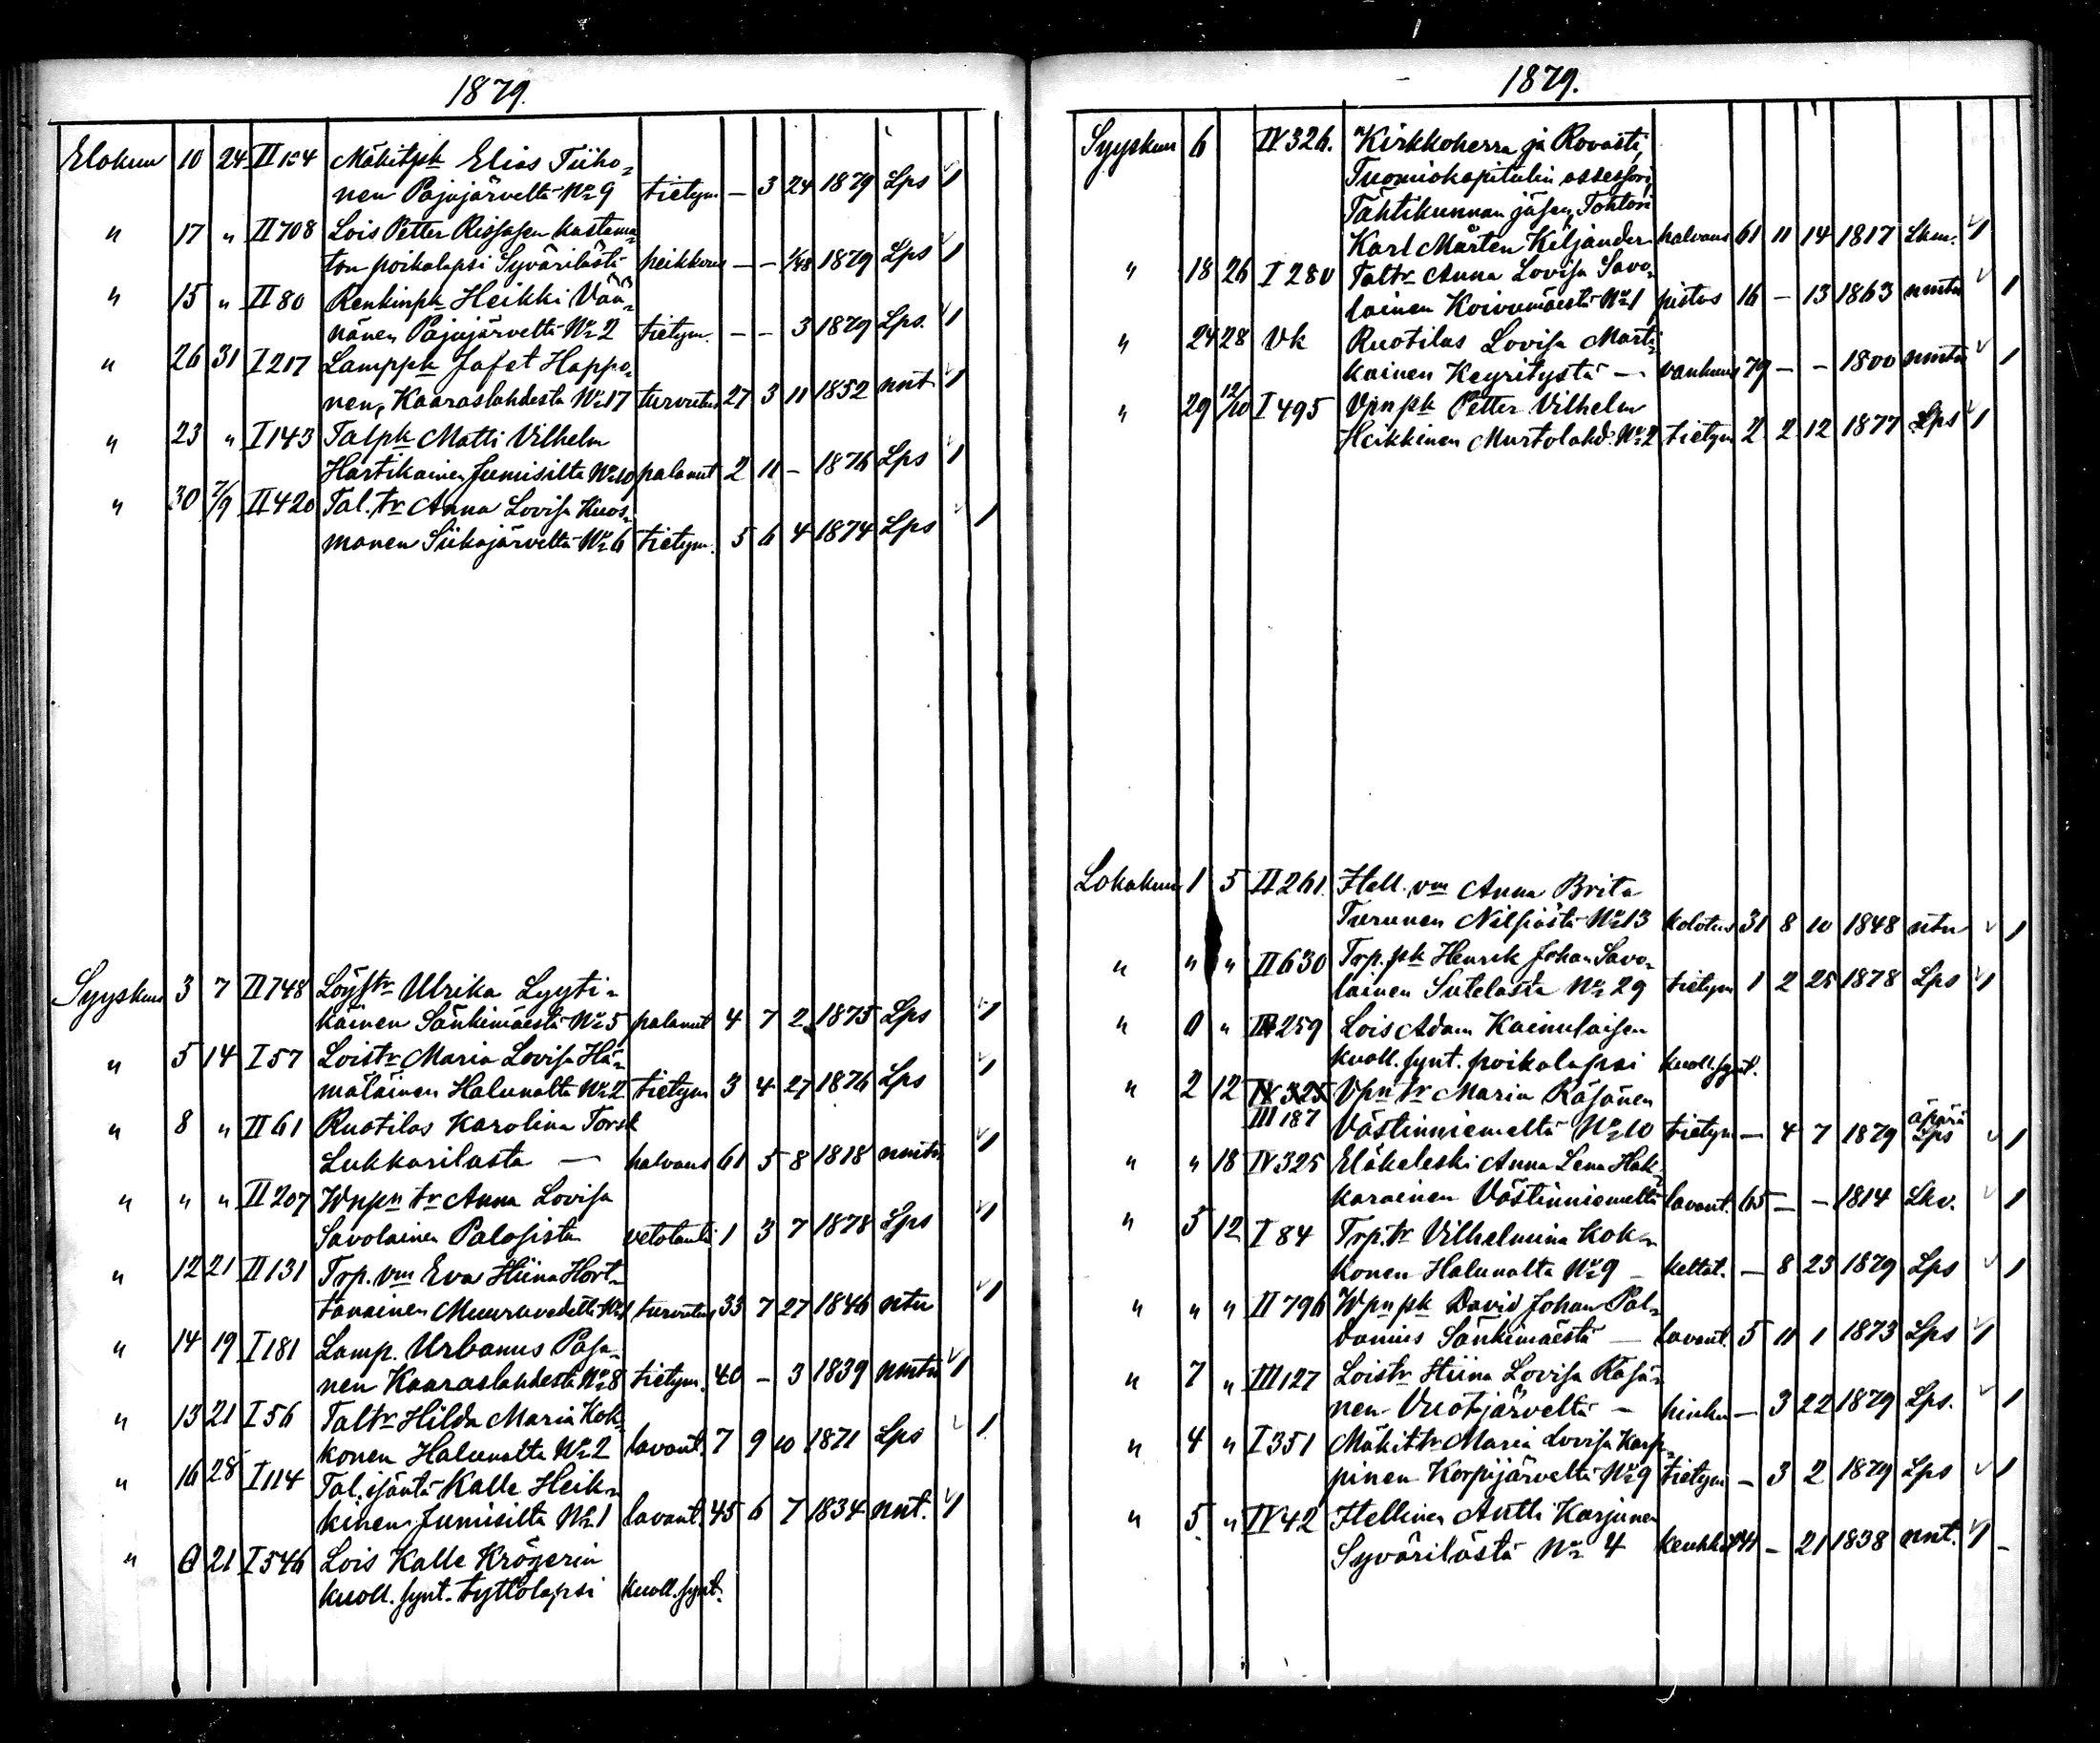 1879.
Elokuu 10 24 II 154 Mäkitpk Elias Tiiho-
nen Pajujärveltä No 9 tietym — 3 24 1879 Lps 1
" 17 " II 708 Lois Petter Rissasen kastama-
ton poikalapsi Syvärilästä heikkous — — 1/48 1879 Lps 1
" 15 " II 80 Renkinpk Heikki Vää-
nänen Pajujärveltä No 2 tietym. — — 3 1879 Lps. 1
" 26 31 I 217 Lamppk Jafet Happo-
nen, Kaaraslahdesta No 17 turvotus 27 3 11 1852 nnt 1
" 23 " I 143 Talpk Matti Vilhelm
Hartikainen Jumisilta No 10 palanut 2 11 — 1876 Lps 1
" 30 7/9 II 420 Tal. tr Anna Lovisa Kuos-
manen Siikajärveltä No 6 tietym. 5 6 4 1874 Lps 1
Syyskuu 3 7 II 748 Löystr Ulrika Lyyti-
käinen Sänkimäestä No 5 palanut 4 7 2 1875 Lps 1
" 5 14 I 57 Loistr Maria Lovisa Hä-
mäläinen Halunalta No 2 tietym 3 4 27 1876 Lps 1
" 8 " II 61 Ruotilas Karolina Torsk
Lukkarilasta — halvaus 61 5 8 1818 nmtn 1
" " " II 207 Wnpn tr Anna Lovisa
Savolainen Palosista vetotauti 1 3 7 1878 Lps 1
" 12 21 II 131 Trp. vm Eva Stiina Hort-
tanainen Muuruvedeltä No 1 turvotus 33 7 27 1846 ntn 1
" 14 19 I 181 Lamp. Urbanus Pasa-
nen Kaaraslahdesta No 8 tietym. 40 — 3 1839 nmtn 1
" 13 21 I 56 Taltr Hilda Maria Kok-
konen Halunalta No 2 lavant. 7 9 10 1871 Lps 1
" 16 28 I 114 Tal. isäntä Kalle Heik-
kinen Jumisilta No 1 lavant. 45 6 7 1834 nnt. 1
" 0 21 I 546 Lois Kalle Krögerin
kuoll. synt. tyttölapsi kuoll. synt.
1879.
Syyskuu 6 IV 326. Kirkkoherra ja Rovasti,
Tuomiokapitulin assessori,
Tähtikunnan jäsen, Tohtori
Karl Mårten Kiljander halvaus 61 11 14 1817 Lkm. 1
" 18 26 I 280 Taltr Anna Lovisa Savo-
lainen Koivumäestä No 1 pistos 16 — 13 1863 nmtn 1
" 24 28 Vk Ruotilas Lovisa Marti-
kainen Keyritystä — vanhuus 79 — — 1800 nmtn 1
" 29 12/10 I 495 Vpn pk Petter Vilhelm
Heikkinen Murtolahd. No 2 tietym 2 2 12 1877 Lps 1
Lokakuu 1 5 II 261. Itell. vm Anna Brita
Turunen Nilsiästä No 13 kolotus 31 8 10 1848 ntn 1
" " " II 630 Trp. pk Henrik Johan Savo-
lainen Sutelasta No 29 tietym 1 2 25 1878 Lps 1
" 0 " III 259 Lois Adam Kainulaisen
kuoll. synt. poikalapsi kuoll. synt.
" 2 12 IV 325 Vpn tr Maria Räsänen
III 187 Västinniemeltä No 10 tietym — 4 7 1879 äpärä Lps 1
" " 18 IV 325 Eläkeleski Anna Lena Hak-
karainen Västinniemeltä lavant. 65 — — 1814 Lkv. 1
" 5 12 I 84 Trp. tr Vilhelmina Kok-
konen Halunalta No 9 — keltat. — 8 23 1879 Lps 1
" " " II 796 Wpn pk David Johan Pal-
danius Sänkimäestä — lavant. 5 11 1 1873 Lps 1
" 7 " III 127 Loistr Stiina Lovisa Räsä-
nen Vuotjärveltä — hinku — 3 22 1879 Lps. 1
" 4 " I 351 Mäkittr Maria Lovisa Karp-
pinen Korpijärveltä No 9 tietym — 3 2 1879 Lps 1
" 5. " IV 42 Itellinen Antti Karjunen
Syvärilästä No 4 keuhkot 41 — 21 1838 nnt. 1 —